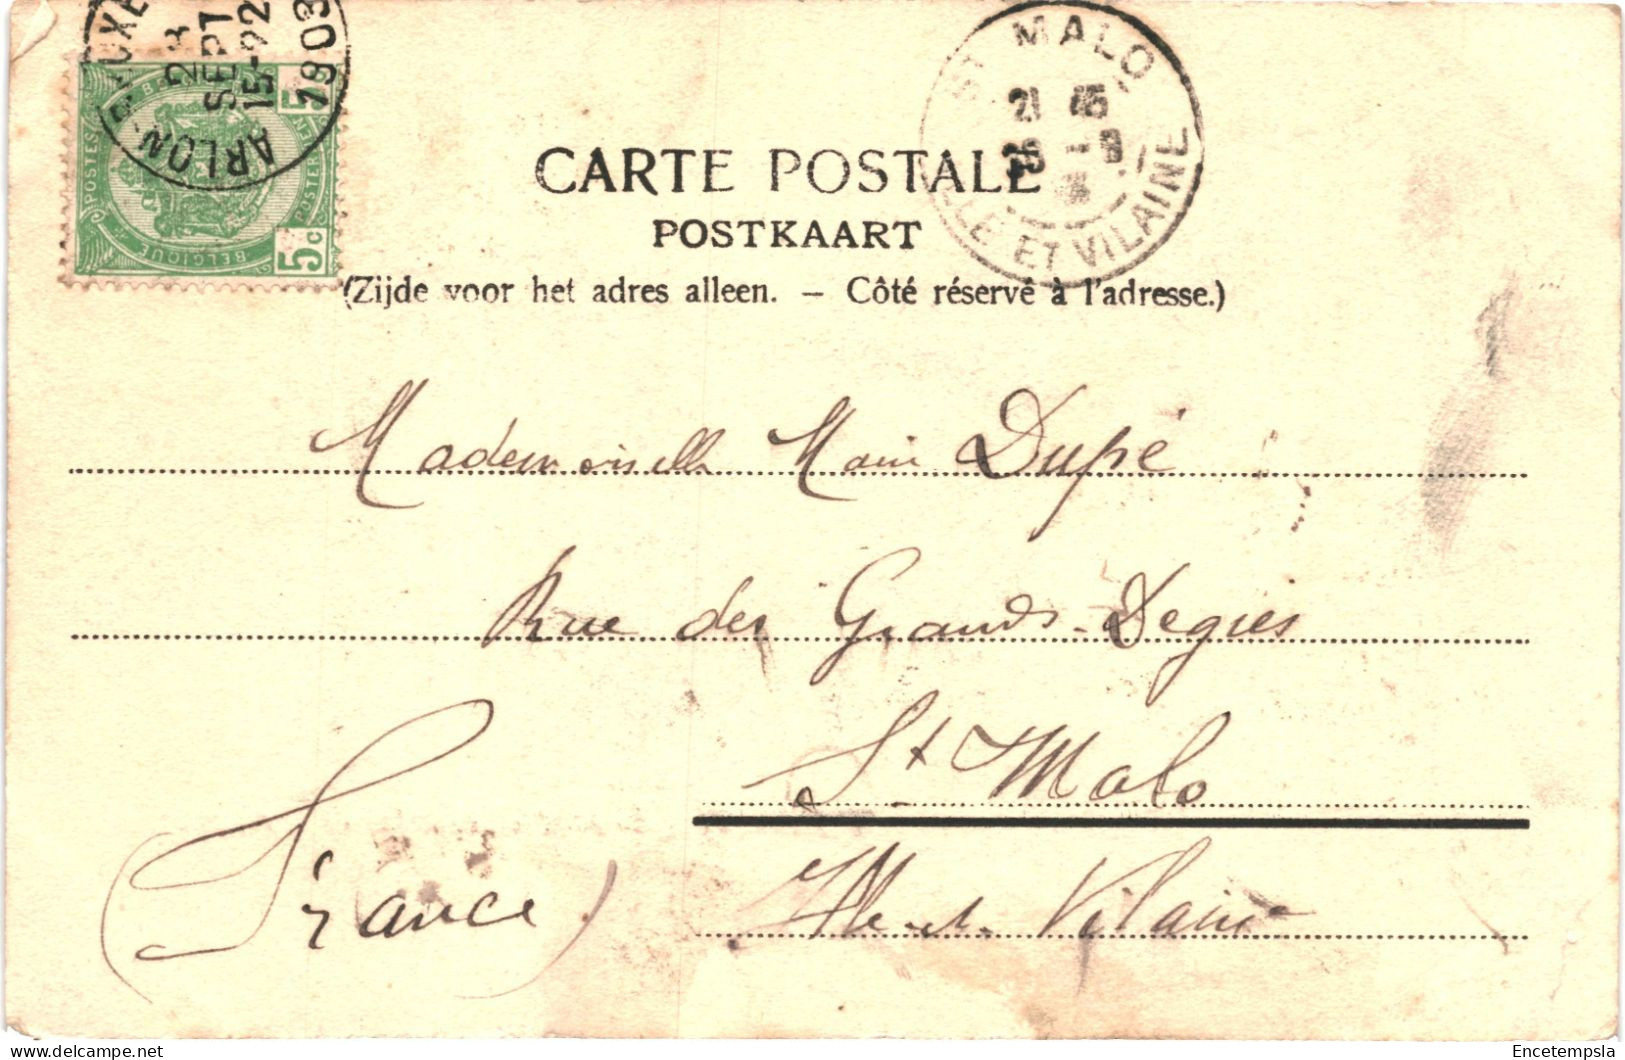 ARLON - BRUXE
28
SEPT
15-22
1903
POSTES
BELGIQUE
POSTERIJEN
5c
5c
ST MALO
21 45
ILLE ET VILAINE
CARTE POSTALE
POSTKAART
(Zijde voor het adres alleen. – Côté réservé à l'adresse.)
Mademoiselle Marie Dupé
Rue des Grands-Degrés
St Malo
(France)
Ille-et-Vilaine
Encetempsla